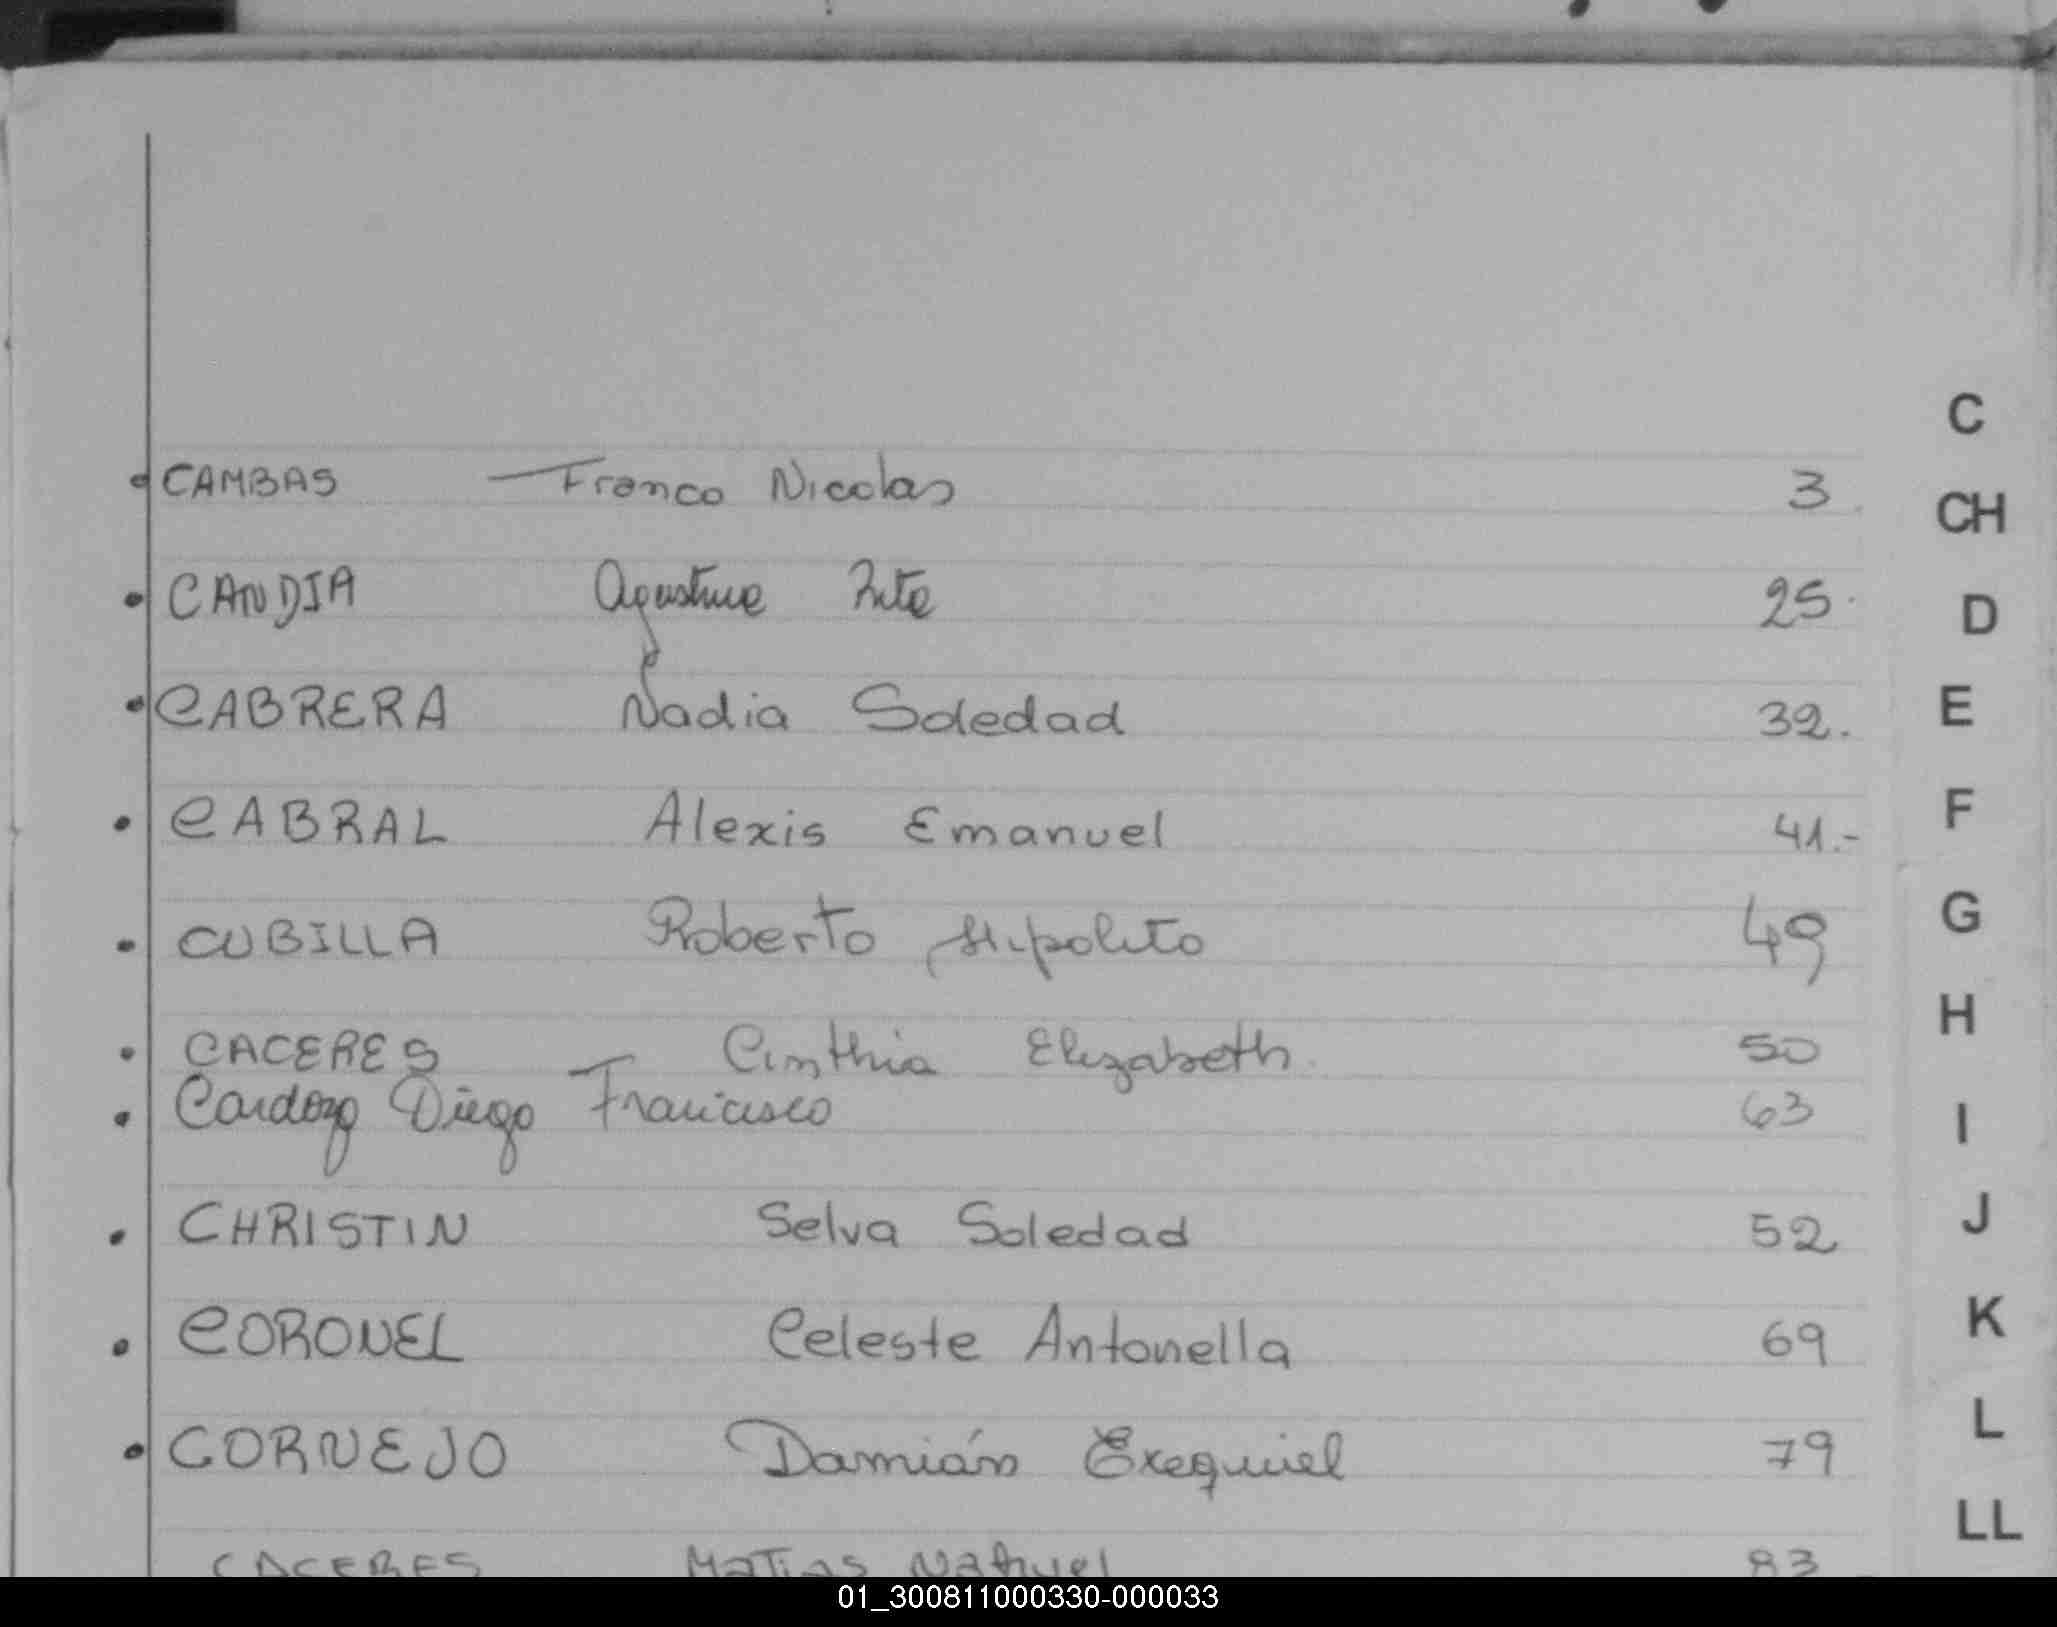 C
CAMBAS Franco Nicolas 3
CH
CANDIA Agustina Rita 25.
D
CABRERA Nadia Soledad 32.
E
CABRAL Alexis Emanuel 41.-
F
CUBILLA Roberto Hipolito 49
G
CACERES Cinthia Elizabeth. 50
H
Cardozo Diego Francisco 63
I
CHRISTIN Selva Soledad 52
J
CORONEL Celeste Antonella 69
K
CORNEJO Damián Exequiel 79
L
LL
CACERES Matias Nahuel 83
01_300811000330-000033